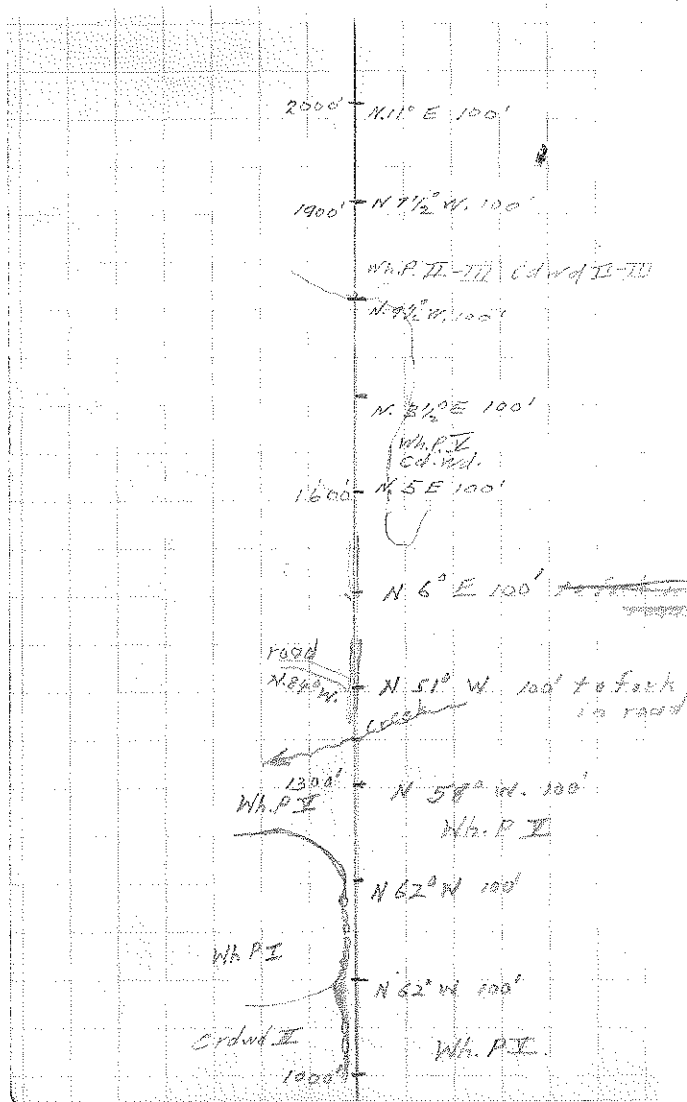 2000' N.11° E 100'
1900' N 7 1/2° W. 100'
Wh.P. II-III Cdwd II-III
N. 9 1/2° W. 100'
N. 3 1/2° E 100'
Wh.P. V
Cd.wd.
1600' N. 5 E 100'
N 6° E 100'
road
N.84° W.
N 51° W 100' to fork
in road
creek
1300' N 58° W. 100'
Wh.P V
Wh. P V
N 62° W 100'
Wh P I
N 62° W 100'
Crdwd II
Wh. P V
1000'